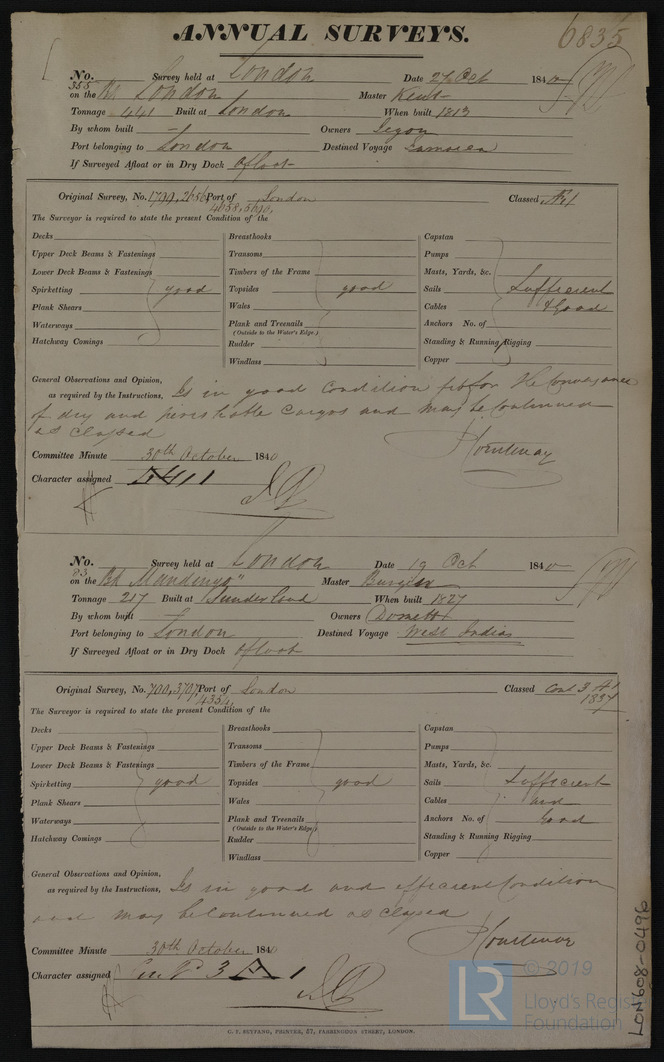 ANNUAL SURVEYS. 6835
No. 355 Survey held at London Date 26 Oct 1840
on the Bk London Master Kent
Tonnage 441 Built at London When built 1813
By whom built — Owners
Port belonging to London Destined Voyage Jamaica
If Surveyed Afloat or in Dry Dock afloat
Original Survey, No. 1799, 2656 Port of London Classed Æ1
4658, 5690,
The Surveyor is required to state the present Condition of the
Decks Breasthooks Capstan
Upper Deck Beams & Fastenings Transoms Pumps
Lower Deck Beams & Fastenings Timbers of the Frame Masts, Yards, &c.
Spirketting good Topsides good Sails Sufficient
Plank Shears Wales Cables & Good
Waterways Plank and Treenails Anchors No. of
(Outside to the Water's Edge.)
Hatchway Comings Rudder Standing & Running Rigging
Windlass Copper
General Observations and Opinion,
as required by the Instructions, Is in good Condition fit for the Conveyance
of dry and perishable Cargos and may be Continued
as classed
Committee Minute 30th October 1840
Character assigned Æ 1
No. 83 Survey held at London Date 19 Oct 1840
on the Bk Mandingo" Master
Tonnage 217 Built at Sunderland When built 1827
By whom built — Owners Domett
Port belonging to London Destined Voyage West Indies
If Surveyed Afloat or in Dry Dock afloat
Original Survey, No. 700, 3707, Port of London Classed Cont 3 A1
4354, 1837
The Surveyor is required to state the present Condition of the
Decks Breasthooks Capstan
Upper Deck Beams & Fastenings Transoms Pumps
Lower Deck Beams & Fastenings Timbers of the Frame Masts, Yards, &c.
Spirketting good Topsides good Sails Sufficient
Plank Shears Wales Cables and
Waterways Plank and Treenails Anchors No. of Good
(Outside to the Water's Edge.)
Hatchway Comings Rudder Standing & Running Rigging
Windlass Copper
General Observations and Opinion,
as required by the Instructions, Is in good and efficient Condition
and may be Continued as classed
Committee Minute 30th October 1840
Character assigned 3 A 1
C. F. SEYFANG, PRINTER, 57, FARRINGDON STREET, LONDON.
LON608-0496
LR © 2019
Lloyd's Register
Foundation